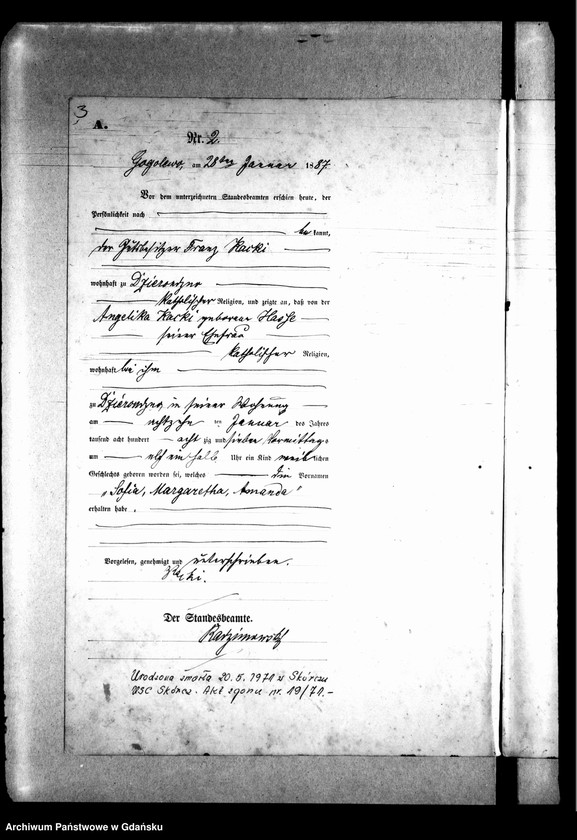 3
A.
Nr. 2.
Gogolewo, am 28ten Januar 1887
Vor dem unterzeichneten Standesbeamten erschien heute, der
Persönlichkeit nach
bekannt,
der Gutsbesitzer Franz Kacki
wohnhaft zu Dzierondzno
katholischer Religion, und zeigte an, daß von der
Angelika Kacki geborene Hasse
seiner Ehefrau
katholischer Religion,
wohnhaft bei ihm
zu Dzierondzno in seiner Wohnung
am achtzehn ten Januar des Jahres
tausend acht hundert acht zig und sieben Vormittags
um elf ein halb Uhr ein Kind weiblichen
Geschlechts geboren worden sei, welches die Vornamen
„Sofia, Margaretha, Amanda"
erhalten habe.
Vorgelesen, genehmigt und unterschrieben.
Kacki.
Der Standesbeamte.
Urodzona zmarła 20.5.1971 w Skórczu
USC Skórcz. Akt zgonu nr. 19/71.-
Archiwum Państwowe w Gdańsku